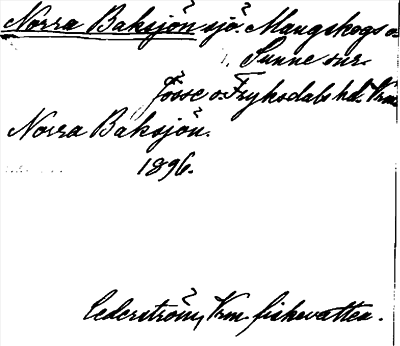 Norra Baksjön sjö. Mangskogs o.
Sunne snr.
Jösse o. Fryksdals hd. Vrm
Norra Baksjön.
1896.
Cederström, Vrm fiskevatten.